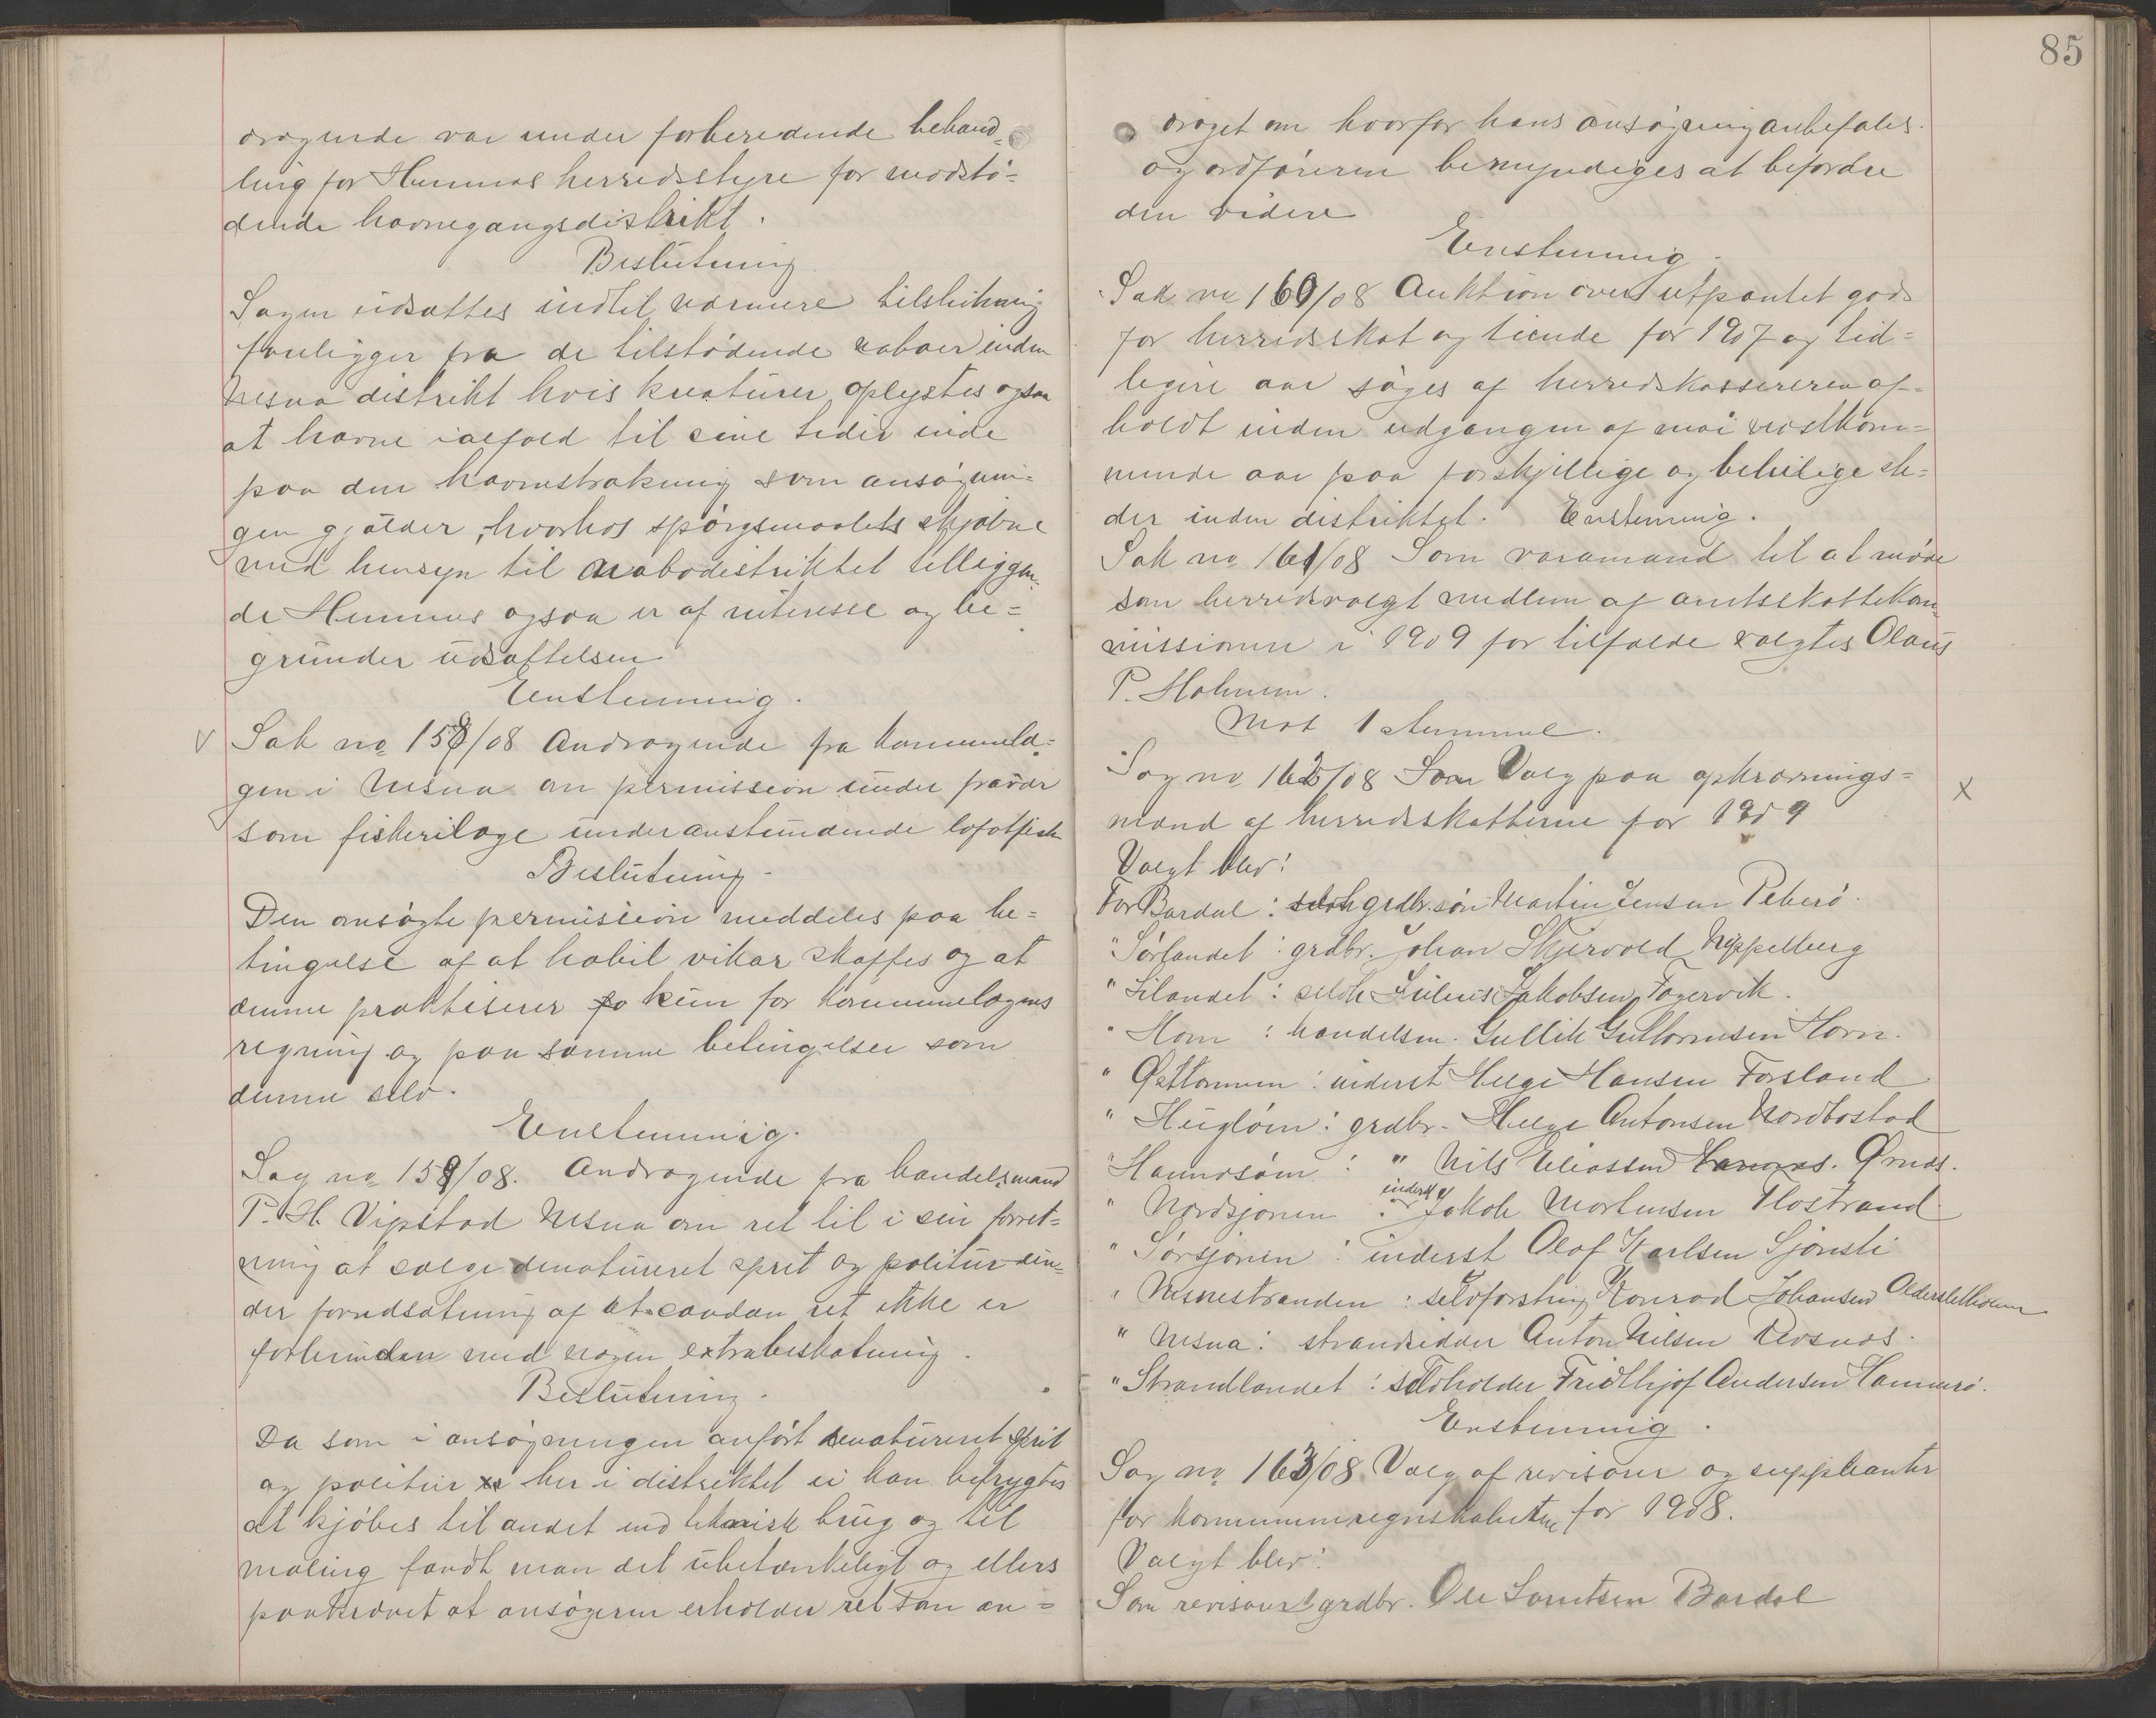 85
dragende var under forberedende behand-
ling for Hemnes herredsstyre for modstö-
dende havnegangsdistrikt.
Beslutning
Sagen udsættes indtil nærmere tilslutning
foreligger fra de tilstödende naboer inden
Nesna distrikt hvis kreaturer oplystes ogsaa
at havne ialfald til sine tider inde
paa den havnestrækning som ansögnin-
gen gjælder, hvorhos spörgsmaalets skjæbne
med hensyn til nabodistriktet tilliggen-
de Hemnes ogsaa er af interesse og be-
grunder udsættelsen
Enstemmig.
Sak no 158/08 Andragende fra kommunelæ-
gen i Nesna om permission under fravær
som fiskerilæge under anstundende lofotfiske
Beslutning
Den ansögte permission meddeles paa be-
tingelse af at habil vikar skaffes og at
denne praktiserer kun for kommunelægens
regning og paa samme betingelser som
denne selv.
Enstemmig.
Sag no 159/08. Andragende fra handelsmand
P. H. Vipstad Nesna om ret til i sin forret-
ning at sælge denatureret sprit og politur un-
der forudsætning af at saadan ret ikke er
forbunden med nogen extrabeskatning.
Beslutning.
Da som i ansögningen anfört denatureret sprit
og politur her i distriktet ei kan befrygtes
at kjöbes til andet end teknisk brug og til
maling fandt man det ubetænkeligt og ellers
paakrævet at ansögeren erholder ret som an-
draget om hvorfor hans ansögning anbefales.
og ordföreren bemyndiges at befordre
den videre
Enstemmig.
Sak no 160/08 Auktion over utpantet gods
for herredsskat og tiende for 1907 og tid-
ligere aar söges af herredskassereren af-
holdt inden udgangen af mai næstkom-
mende aar paa forskjellige og beleilige ste-
der inden distriktet. Enstemmig.
Sak no 161/08 Som varamand til at möde
som herredsvalgt medlem af amtsskattekom-
missionen i 1909 for tilfælde valgtes Olaus
P. Holmen.
Mot 1 stemme.
Sag no 162/08 Som Valg paa opkrævnings-
mænd af herredsskatterne for 1909
Valgt blev:
For Bardal: grdbr. sön Martin Jensen Peterö.
" Sörlandet: grdbr. Johan Skjervold Nippelberg
" Silandet: selvh Julius Jakobsen Fagervik.
" Horn: handelsm. Gullik Guttormsen Horn.
" Østkommen: inderst Helge Hansen Forsland
" Hugløen: grdbr. Helge Antonsen Nordbostad
" Handnesöen: " Nils Eliassen Ørnes.
" Nordsjonen: inderst Jakob Mortensen Flostrand
" Sörsjonen: inderst Olaf Karlsen Sjonsli
" Nesnestranden: selvforsting Konrad Johansen Alderslettheim
" Nesna: strandsidder Anton Nilsen Rosnes.
" Strandlandet: selvholder Fridthjof Andersen Hammerö.
Enstemmig.
Sag no 163/08 Valg af revisorer og suppleanter
for kommuneregnskaberne for 1908.
Valgt blev:
Som revisorer grdbr. Ole Lorntsen Bardal